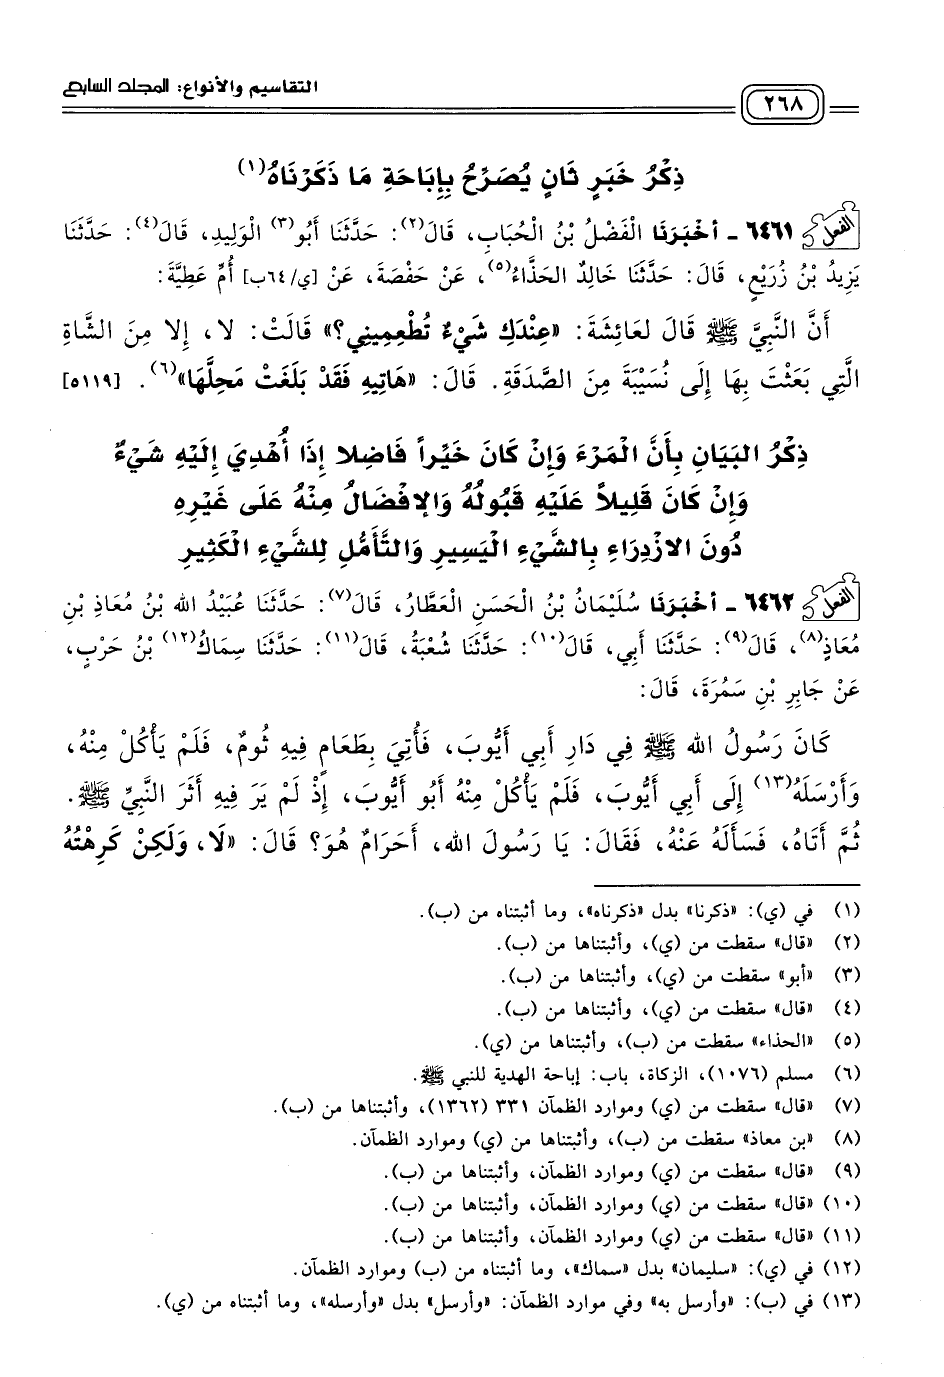 التقاسيم والأنواع: المجلد السابع
٢٦٨
ذِكْرُ خَبَرٍ ثَانٍ يُصَرِّحُ بِإِبَاحَةِ مَا ذَكَرْنَاهُ(١)
الفعل ٦٤٦١ - أخْبَرَنَا الْفَضْلُ بْنُ الْحُبَابِ، قَالَ(٢): حَدَّثَنَا أَبُو(٣) الْوَلِيدِ، قَالَ(٤): حَدَّثَنَا
يَزِيدُ بْنُ زُرَيْعٍ، قَالَ: حَدَّثَنَا خَالِدٌ الحَذَّاءُ(٥)، عَنْ حَفْصَةَ، عَنْ [ي/٦٤ب] أُمِّ عَطِيَّةَ:
أَنَّ النَّبِيَّ ﷺ قَالَ لعَائِشَةَ: «عِنْدَكِ شَيْءٌ تُطْعِمِينِي؟» قَالَتْ: لا، إلا مِنَ الشَّاةِ
الَّتِي بَعَثْتَ بِهَا إِلَى نُسَيْبَةَ مِنَ الصَّدَقَةِ. قَالَ: «هَاتِيهِ فَقَدْ بَلَغَتْ مَحِلَّهَا»(٦). [٥١١٩]
ذِكْرُ البَيَانِ بِأَنَّ الْمَرْءَ وَإِنْ كَانَ خَيِّراً فَاضِلا إِذَا أُهْدِيَ إِلَيْهِ شَيْءٌ
وَإِنْ كَانَ قَلِيلاً عَلَيْهِ قَبُولُهُ وَالإفْضَالُ مِنْهُ عَلَى غَيْرِهِ
دُونَ الازْدِرَاءِ بِالشَّيْءِ الْيَسِيرِ وَالتَّأَمُّلِ لِلشَّيْءِ الْكَثِيرِ
الفعل ٦٤٦٢ - أخْبَرَنَا سُلَيْمَانُ بْنُ الْحَسَنِ العَطَّارُ، قَالَ(٧): حَدَّثَنَا عُبَيْدُ الله بْنُ مُعَاذِ بْنِ
مُعَاذٍ(٨)، قَالَ(٩): حَدَّثَنَا أَبِي، قَالَ(١٠): حَدَّثَنَا شُعْبَةُ، قَالَ(١١): حَدَّثَنَا سِمَاكُ(١٢) بْنُ حَرْبٍ،
عَنْ جَابِرِ بْنِ سَمُرَةَ، قَالَ:
كَانَ رَسُولُ الله ﷺ فِي دَارِ أَبِي أَيُّوبَ، فَأُتِيَ بِطَعَامٍ فِيهِ ثُومٌ، فَلَمْ يَأْكُلْ مِنْهُ،
وَأَرْسَلَهُ(١٣) إِلَى أَبِي أَيُّوبَ، فَلَمْ يَأْكُلْ مِنْهُ أَبُو أَيُّوبَ، إِذْ لَمْ يَرَ فِيهِ أَثَرَ النَّبِيِّ ﷺ.
ثُمَّ أَتَاهُ، فَسَأَلَهُ عَنْهُ، فَقَالَ: يَا رَسُولَ الله، أَحَرَامٌ هُوَ؟ قَالَ: «لَا، وَلَكِنْ كَرِهْتُهُ
(١) في (ي): «ذكرنا» بدل «ذكرناه»، وما أثبتناه من (ب).
(٢) «قال» سقطت من (ي)، وأثبتناها من (ب).
(٣) «أبو» سقطت من (ي)، وأثبتناها من (ب).
(٤) «قال» سقطت من (ي)، وأثبتناها من (ب).
(٥) «الحذاء» سقطت من (ب)، وأثبتناها من (ي).
(٦) مسلم (١٠٧٦)، الزكاة، باب: إباحة الهدية للنبي ﷺ.
(٧) «قال» سقطت من (ي) وموارد الظمآن ٣٣١ (١٣٦٢)، وأثبتناها من (ب).
(٨) «بن معاذ» سقطت من (ب)، وأثبتناها من (ي) وموارد الظمآن.
(٩) «قال» سقطت من (ي) وموارد الظمآن، وأثبتناها من (ب).
(١٠) «قال» سقطت من (ي) وموارد الظمآن، وأثبتناها من (ب).
(١١) «قال» سقطت من (ي) وموارد الظمآن، وأثبتناها من (ب).
(١٢) في (ي): «سليمان» بدل «سماك»، وما أثبتناه من (ب) وموارد الظمآن.
(١٣) في (ب): «وأرسل به» وفي موارد الظمآن: «وأرسل» بدل «وأرسله»، وما أثبتناه من (ي).